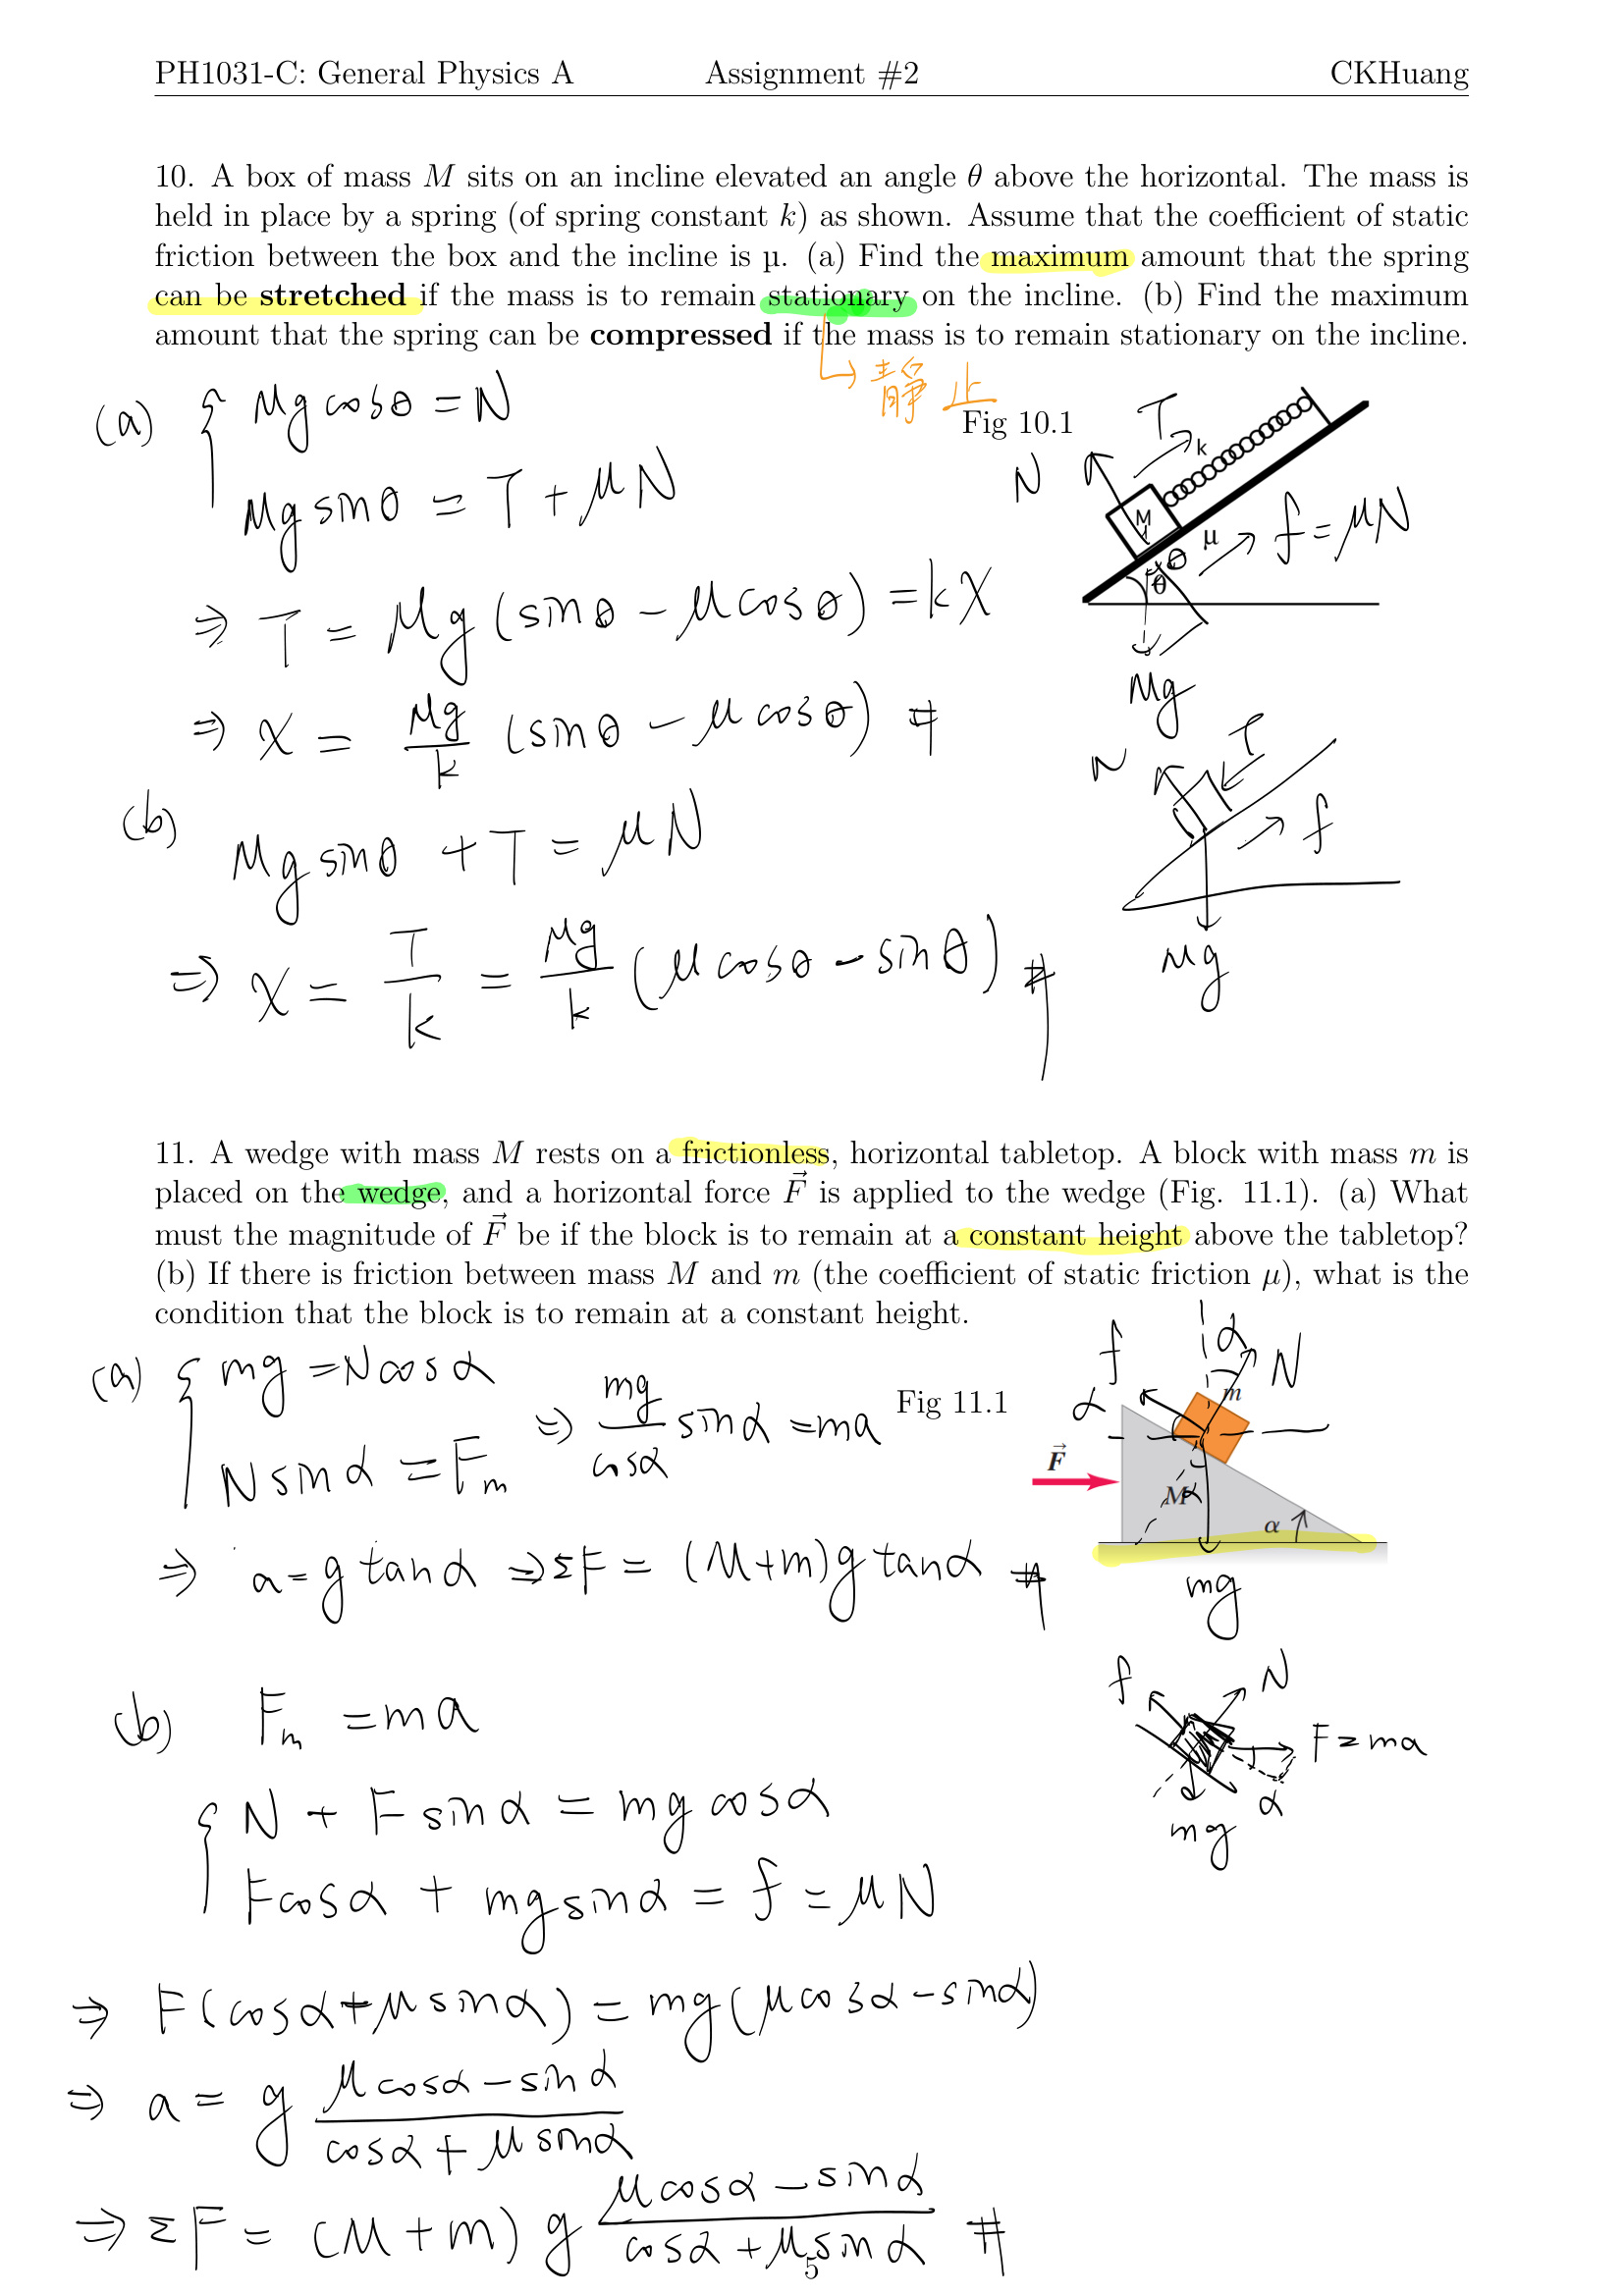 PH1031-C: General Physics A Assignment #2 CKHuang
10. A box of mass M sits on an incline elevated an angle θ above the horizontal. The mass is
held in place by a spring (of spring constant k) as shown. Assume that the coefficient of static
friction between the box and the incline is µ. (a) Find the maximum amount that the spring
can be stretched if the mass is to remain stationary on the incline. (b) Find the maximum
amount that the spring can be compressed if the mass is to remain stationary on the incline.
靜止
Fig 10.1
(a) { Mg cosθ = N
Mg sinθ = T + μN
⇒ T = Mg (sinθ - μcosθ) = kX
⇒ X = Mg/k (sinθ - μcosθ) #
N
T
k
M
θ
θ
μ
f = μN
Mg
(b) Mg sinθ + T = μN
⇒ X = T/k = Mg/k (μcosθ - sinθ) #
N
T
f
Mg
11. A wedge with mass M rests on a frictionless, horizontal tabletop. A block with mass m is
placed on the wedge, and a horizontal force F⃗ is applied to the wedge (Fig. 11.1). (a) What
must the magnitude of F⃗ be if the block is to remain at a constant height above the tabletop?
(b) If there is friction between mass M and m (the coefficient of static friction μ), what is the
condition that the block is to remain at a constant height.
(a) { mg = N cosα
N sinα = Fm ⇒ mg/cosα sinα = ma
⇒ a = g tanα ⇒ ΣF = (M+m)g tanα #
Fig 11.1
f
α
N
α
m
F⃗
M
α
α
mg
(b) Fm = ma
{ N + F sinα = mg cosα
F cosα + mg sinα = f = μN
⇒ F(cosα + μ sinα) = mg(μcosα - sinα)
⇒ a = g (μcosα - sinα)/(cosα + μ sinα)
⇒ ΣF = (M+m) g (μcosα - sinα)/(cosα + μ sinα) #
f
N
F = ma
α
mg
5